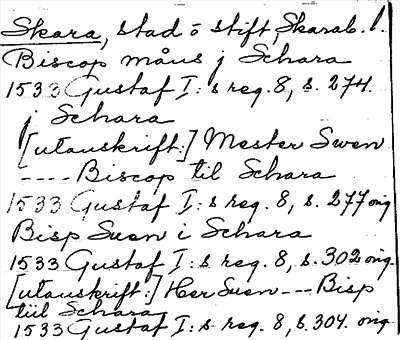 Skara, stad o stift, Skarab. l.
Biscop måns j Schara
1533 Gustaf I:s reg. 8, s. 274.
j Schara
[utanskrift:] Mester Swen
---- Biscop til Schara
1533 Gustaf I:s reg. 8, s. 277 orig
Bisp Suen i Schara
1533 Gustaf I:s reg. 8, s. 302 orig.
[utanskrift:] Her Suen --- Bisp
tiil Schara
1533 Gustaf I:s reg. 8, s. 304. orig